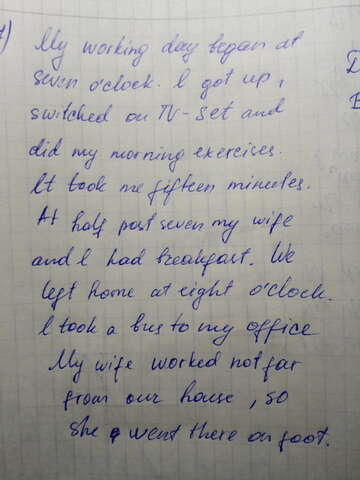 My working day began at
seven o'clock. I got up,
switched on TV-set and
did my morning exercises.
It took me fifteen minutes.
At half past seven my wife
and I had breakfast. We
left home at eight o'clock.
I took a bus to my office
My wife worked not far
from our house, so
she went there on foot.